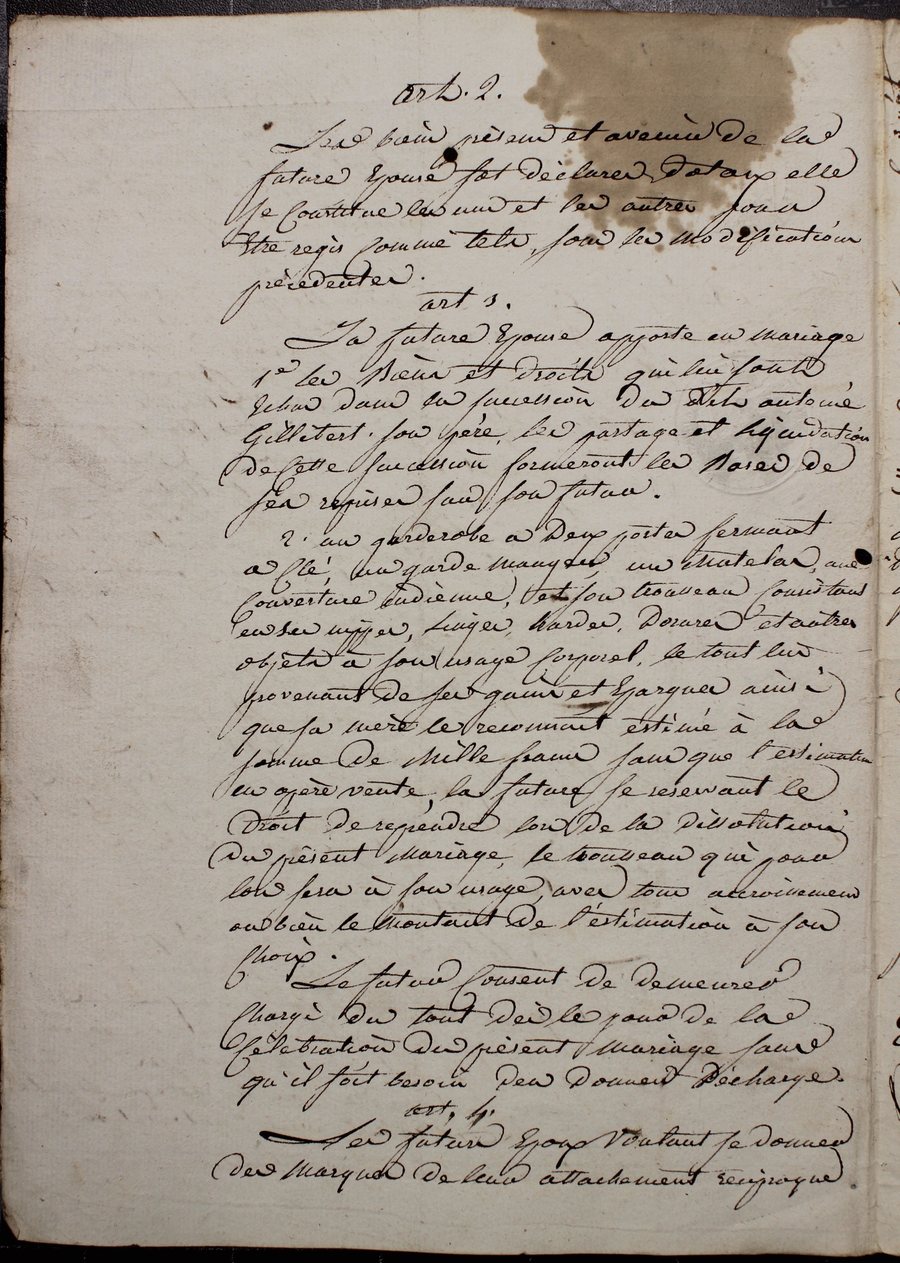 art. 2.
Les biein présens et avenir de la
future Epouse sont déclarer dotaux elle
se Constitue les uns et les autres pour
Etre regis Comme tels, sous les modifications
précédentes.
art 3.
La future Epouse apporte en mariage
1º les Biens et droits qui lui sont
Echus dans la succession du dit antoine
Gillibert son père, les partage et liquidation
de Cette succession formeront les Bases de
ses reprises sur son futur.
2º un garderobe a Deux portes fermant
a Clé, un garde manger un Matelas, une
Couverture indienne, et son trousseau Consistant
en ses nippes, Linges, hardes, Dorures et autres
objets à son usage Corporel, le tout lui
provenant de ses gains et Epargnes ainsi
que sa mère le reconnait estimé à la
somme de Mille francs sans que l'estimation
en opère vente, la future se reservant le
Droit de reprendre lors de la dissolution
du présent Mariage, le trousseau qui pour
lors sera à son usage, avec tous accroissemens
ou bien le Montant de l'éstimation à son
Choix.
Le futur Consent de demeurer
Chargé du tout dès le jour de la
Célébration du présent Mariage sans
qu'il soit besoin d'en donner Décharge.
art. 4.
Les futurs Epoux Voulant se donner
des Marques de leur attachement réciproque